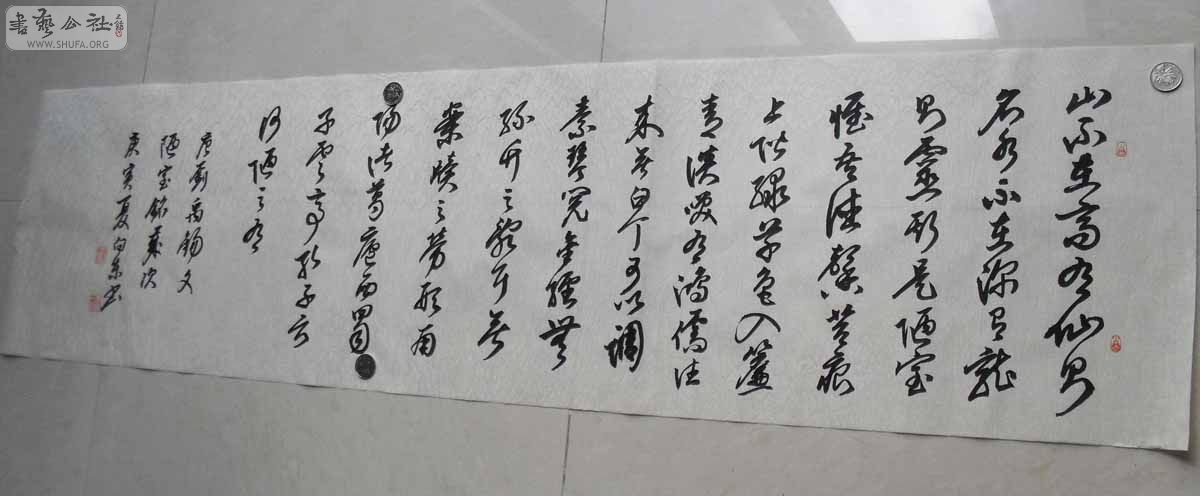 書藝公社
WWW.SHUFA.ORG
山不在高有仙則
名水不在深有龍
則靈斯是陋室
惟吾德馨苔痕
上階綠草色入簾
青談笑有鴻儒往
來無白丁可以調
素琴閱金經無
絲竹之亂耳無
案牘之勞形南
陽諸葛廬西蜀
子雲亭孔子云
何陋之有
唐劉禹錫文
陋室銘
庚寅夏向東書